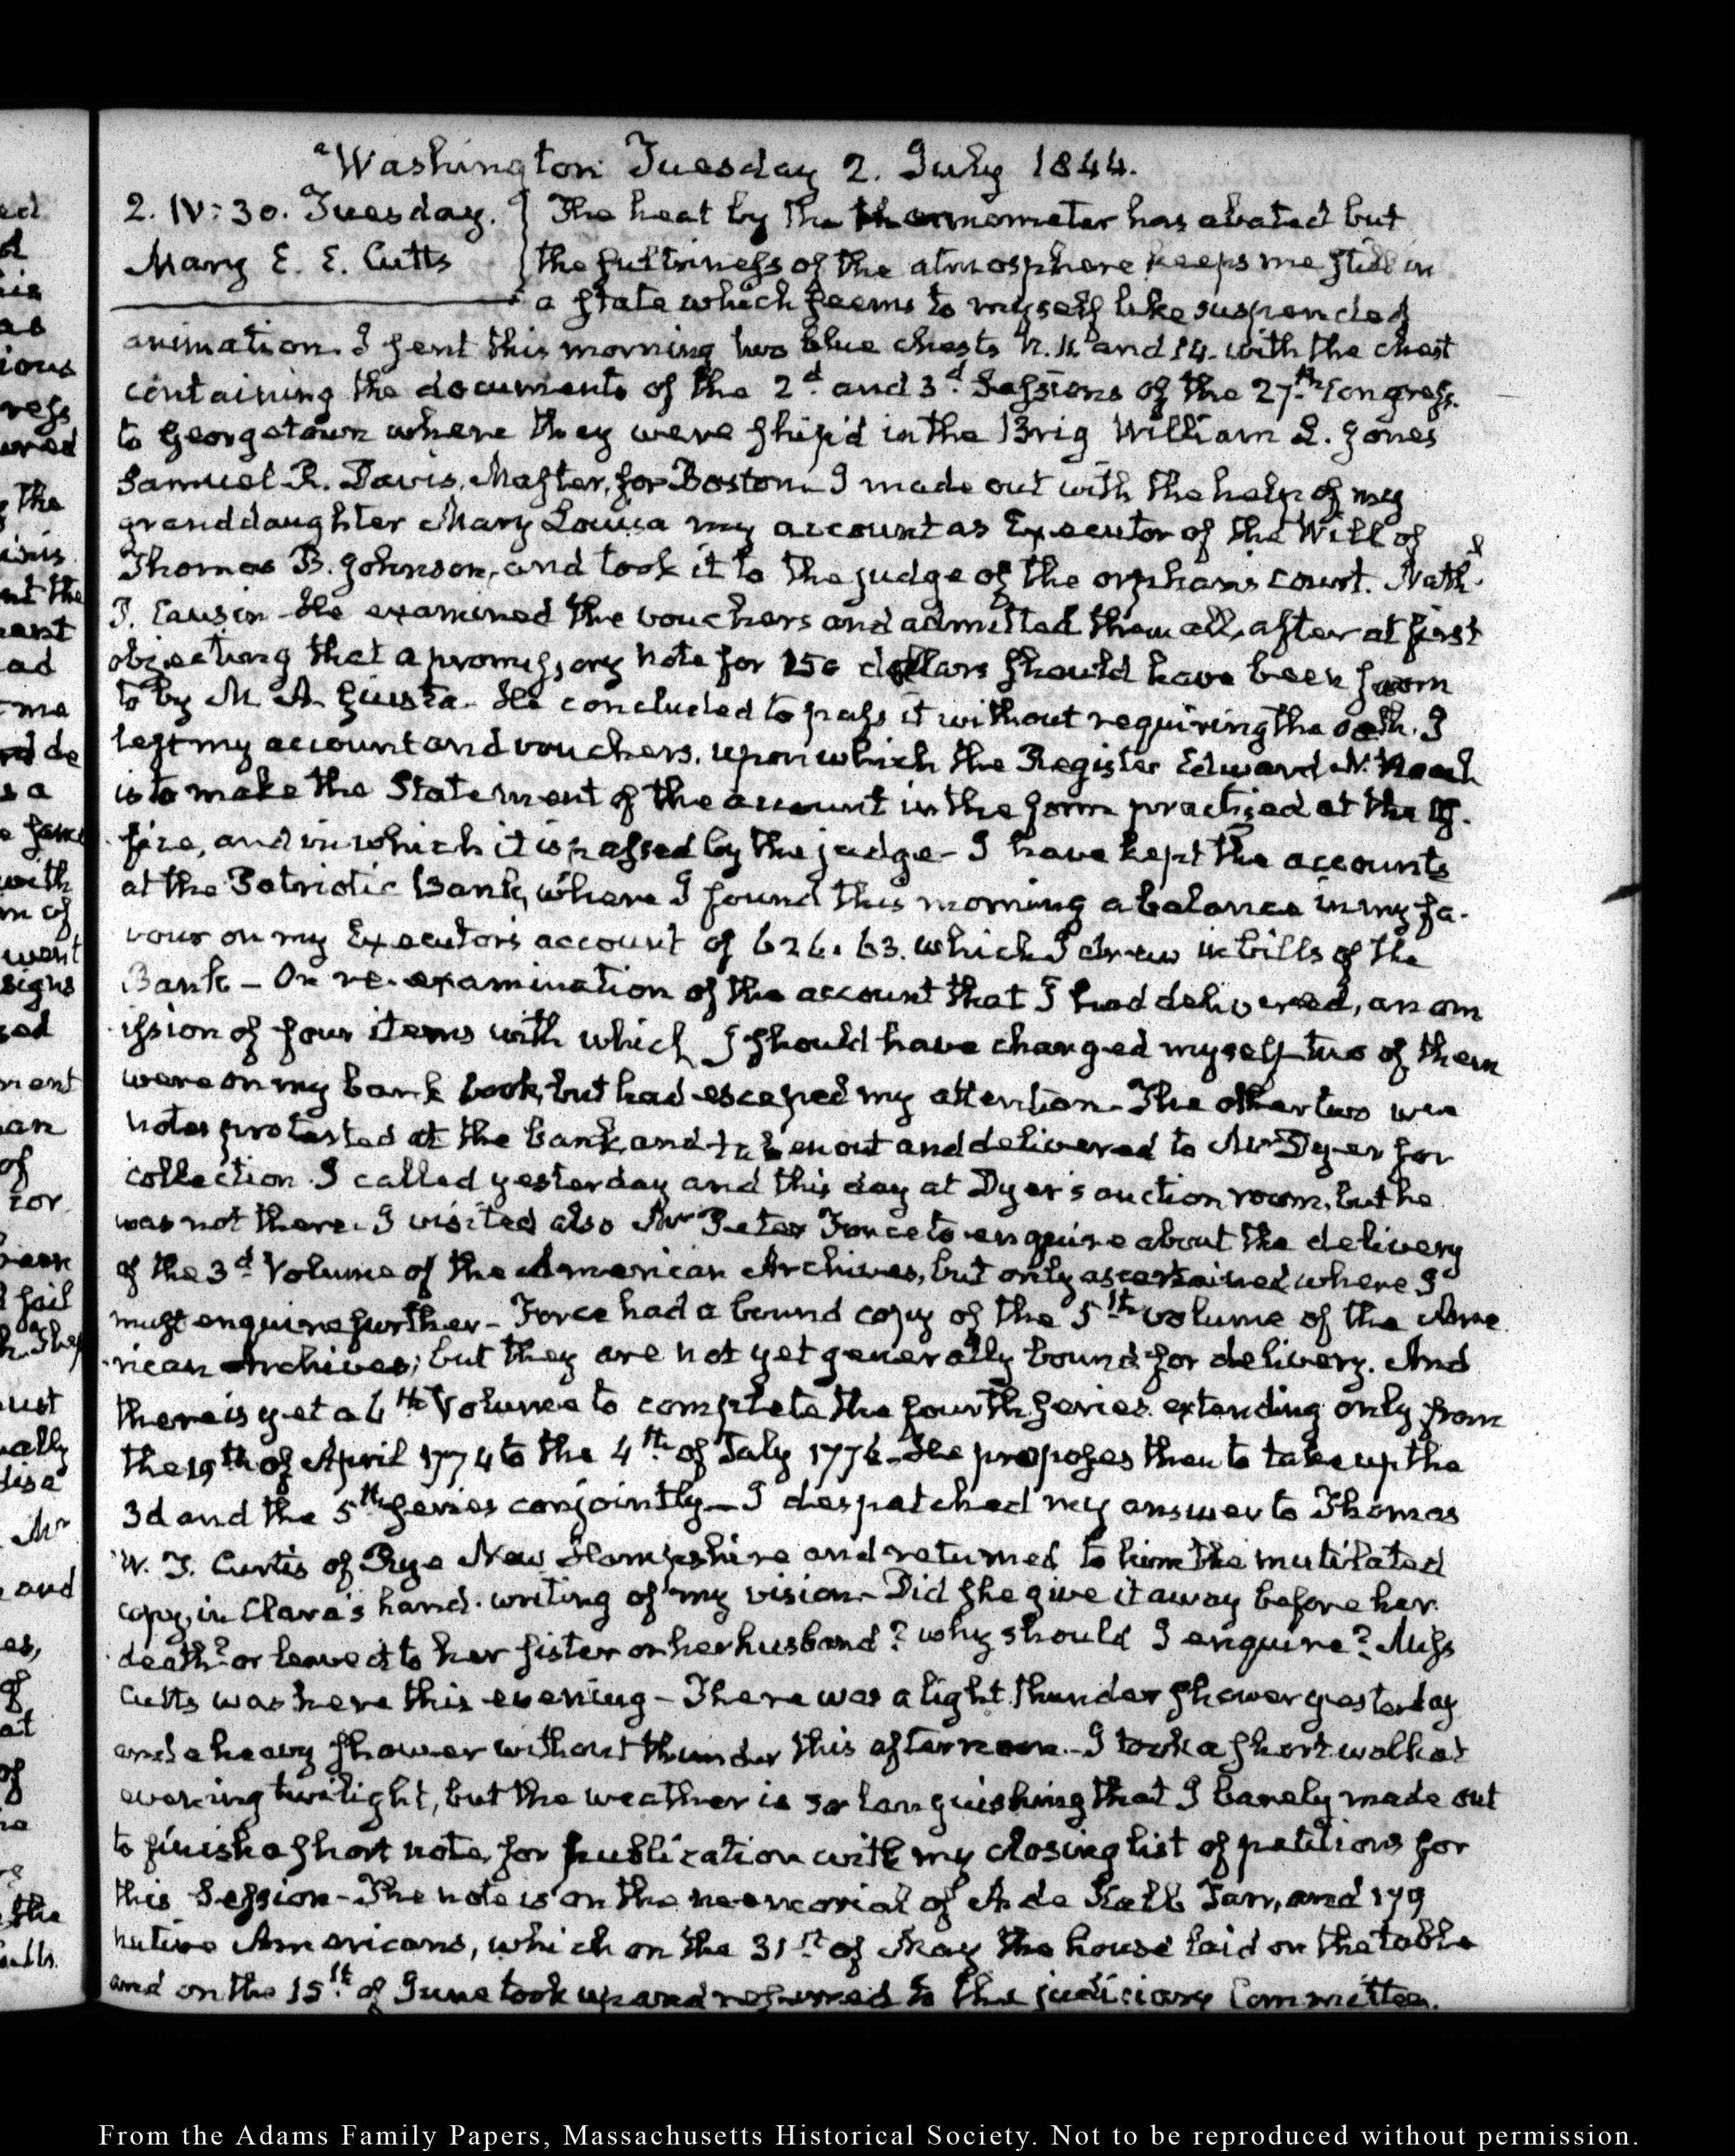 Washington Tuesday 2. July 1844.
2. IV:30. Tuesday. The heat by the thermometer has abated but
Mary E. E. Cutts the sultriness of the atmosphere keeps me still in
a state which seems to myself like suspended
animation. I sent this morning two blue chests N. 11 and 14. with the chest
containing the documents of the 2d. and 3d. Sessions of the 27th Congress.
to Georgetown where they were ship'd in the Brig William L. Jones
Samuel R. Davis, Master, for Boston. I made out with the help of my
granddaughter Mary Louisa my account as Executor of the Will of
Thomas B. Johnson, and took it to the judge of the orphans court. Nathl.
T. Causin. He examined the vouchers and admitted them all, after at first
objecting that a promissory note for 150 dollars should have been sworn
to by M. A. Giusta. He concluded to pass it without requiring the oath. I
left my account and vouchers, upon which the Register Edward N. Roach
is to make the Statement of the account in the form practised at the of-
fice, and in which it is passed by the judge - I have kept the accounts
at the Patriotic Bank, where I found this morning a balance in my fa-
vour on my Executor's account of 626. 63. which I drew in bills of the
Bank - On re-examination of the account that I had delivered, an om
ission of four items with which I should have charged myself two of them
were on my bank book, but had escaped my attention. The other two were
notes protested at the bank, and taken out and delivered to Mr Dyer for
collection. I called yesterday and this day at Dyer's auction room, but he
was not there. I visited also Mr Peter Force to enquire about the delivery
of the 3d. Volume of the American Archives, but only ascertained where I
must enquire further - Force had a bound copy of the 5th. volume of the Ame
rican Archives; but they are not yet generally bound for delivery. And
there is yet a 6th Volume to complete the fourth series extending only from
the 19th of April 1774 to the 4th. of July 1776 - He proposes then to take up the
3d and the 5th series conjointly - I despatched my answer to Thomas
W. T. Curtis of Rye New Hampshire and returned to him the mutilated
copy, in Clara's hand-writing of my vision - Did she give it away before her
death? or leave it to her sister or her husband? why should I enquire? Miss
Cutts was here this evening - There was a light thunder shower yesterday
and a heavy shower without thunder this afternoon - I took a short walk at
evening twilight, but the weather is so languishing that I barely made out
to finish a short note, for publication with my closing list of petitions for
this Session - The note is on the memorial of A de Kalb Tarr, and 179
native Americans, which on the 31st of May the house laid on the table
and on the 15th. of June took up and referred to the judiciary Committee.
ed
d
as
ious
ress
ured
the
nt the
ant
ad
me
de
s a
with
m of
went
signs
ment
an
of
for
fail
ust
ally
Mr
and
of
at
of
the
From the Adams Family Papers, Massachusetts Historical Society. Not to be reproduced without permission.